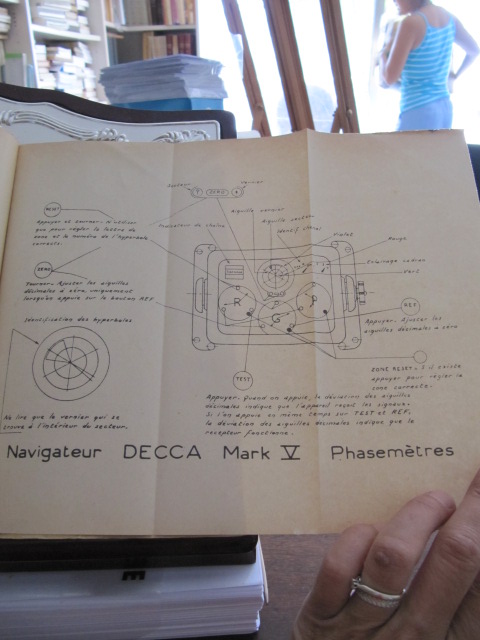 Secteur
Vernier
ZERO
RESET
Appuyer et tourner. N'utiliser
que pour régler la lettre de
zone et le numéro de l'hyperbole
corrects.
Indicateur de chaîne
Aiguille vernier
Aiguille secteur
Identif. (Lane)
Violet
Rouge
Eclairage cadran
Vert
ZERO
Tourner. Ajuster les aiguilles
décimales à zéro uniquement
lorsqu'on appuie sur le bouton REF
R
P
G
REF
Appuyer. Ajuster les
aiguilles décimales à zéro
Identification des hyperboles
ZONE RESET = s'il existe
appuyer pour régler la
zone correcte.
TEST
Appuyer. Quand on appuie, la déviation des aiguilles
décimales indique que l'appareil reçoit les signaux.
Si l'on appuie en même temps sur TEST et REF,
la déviation des aiguilles décimales indique que le
récepteur fonctionne.
Ne lire que le vernier qui se
trouve à l'intérieur du secteur.
Navigateur DECCA Mark V Phasemètres